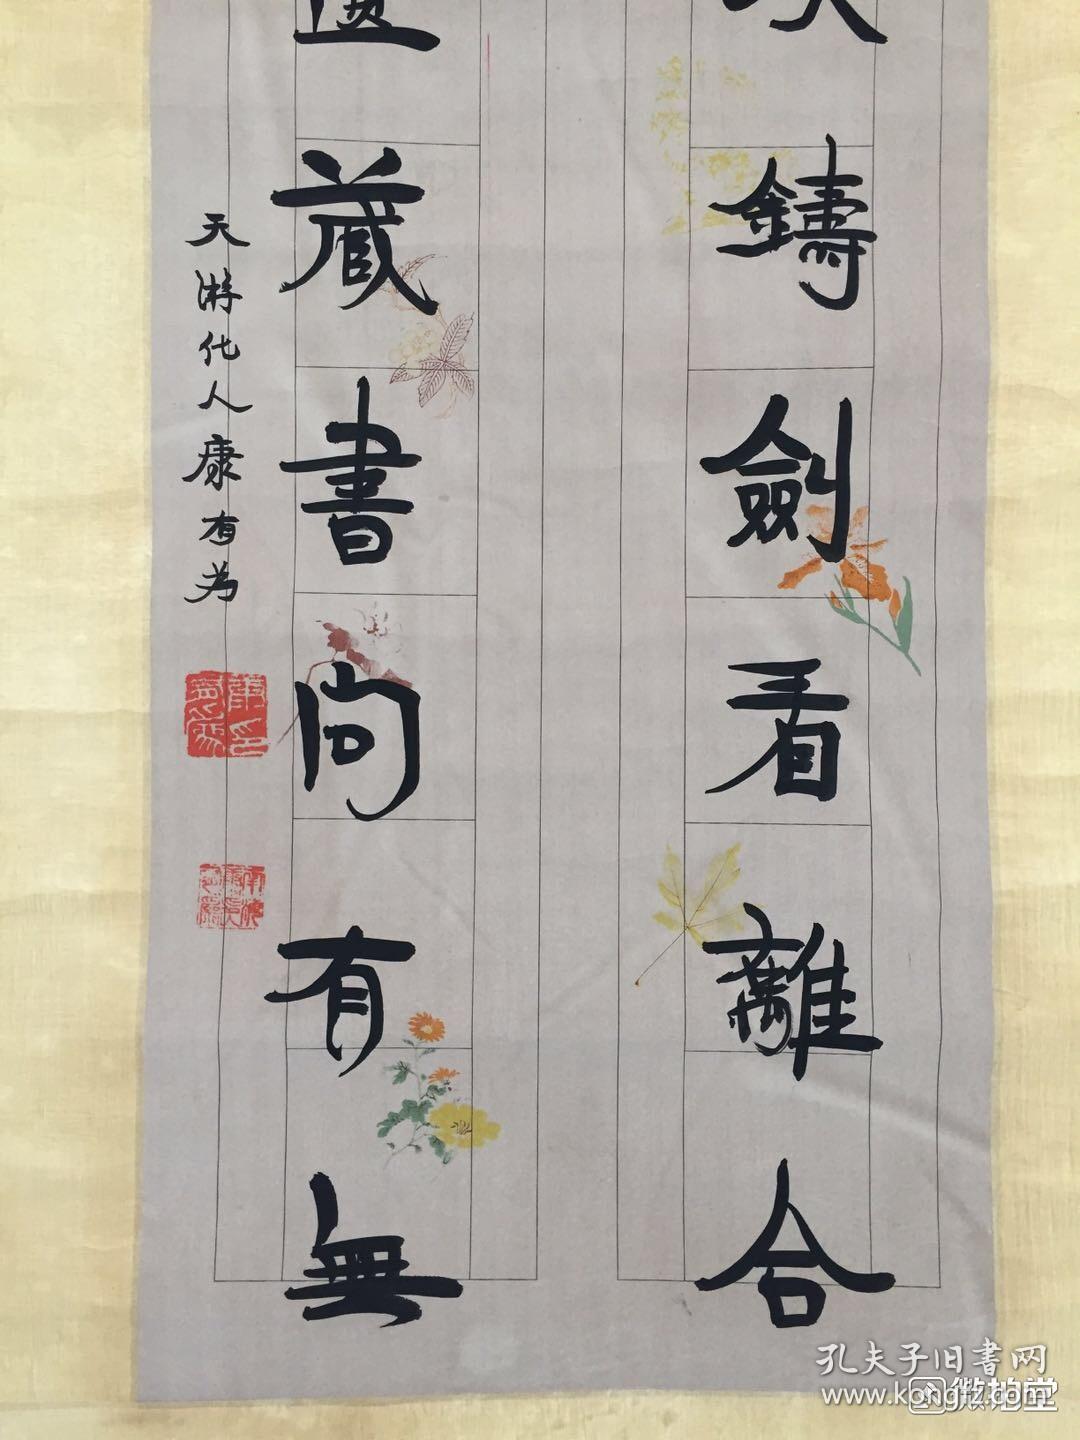 鑄劍看離合
藏書問有無
天游化人康有為
孔夫子旧书网
www.kongfz.com
微拍堂